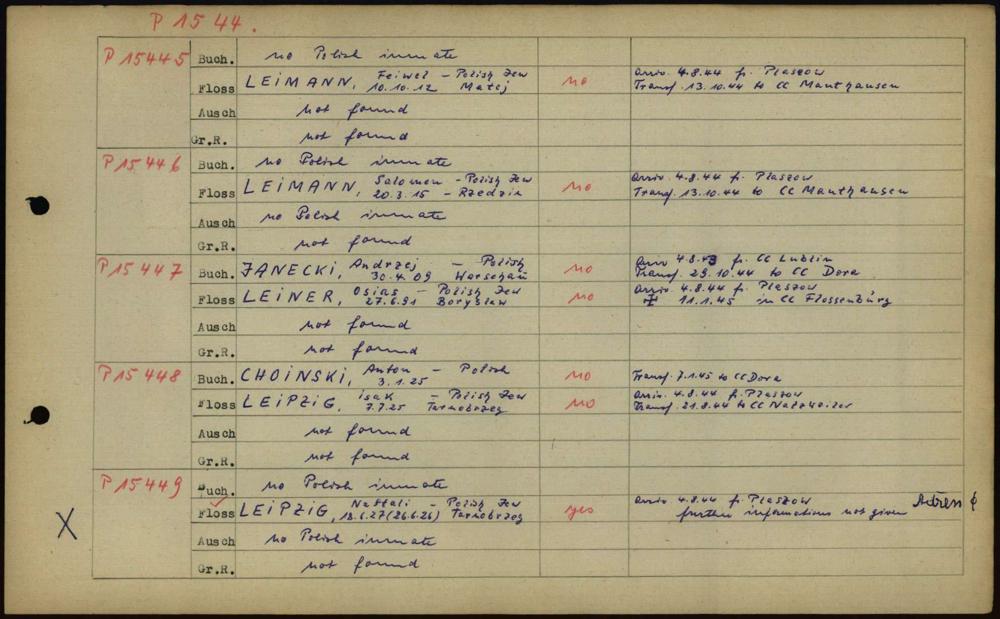 P 15 44.
P 15 445 Buch. no Polish inmate
Floss LEIMANN, Feiwel – Polish Jew no arriv. 4.8.44 fr. Plaszow
10.10.12 Matej Transf. 13.10.44 to CC Mauthausen
Ausch not found
Gr.R. not found
P 15 446 Buch. no Polish inmate
Floss LEIMANN, Salomon – Polish Jew no arriv. 4.8.44 fr. Plaszow
20.3.15 – Rzedzin Transf. 13.10.44 to CC Mauthausen
Ausch no Polish inmate
Gr.R. not found
P 15 447 Buch. JANECKI, Andrzej – Polish no arriv 4.8.43 fr. CC Lublin
30.4.09 Warschau Transf. 29.10.44 to CC Dora
Floss LEINER, Osias – Polish Jew no arriv. 4.8.44 fr. Plaszow
27.6.91 Boryslaw 11.1.45 in CC Flossenbürg
Ausch not found
Gr.R. not found
P 15 448 Buch. CHOINSKI, Anton – Polish no Transf. 7.1.45 to CC Dora
3.1.25
Floss LEIPZIG, Isak – Polish Jew no arriv. 4.8.44 fr. Plaszow
7.7.25 Tarnobrzeg Transf. 21.8.44 to CC Natzweiler
Ausch not found
Gr.R. not found
P 15 449 Buch. no Polish inmate
Floss LEIPZIG, Naftali – Polish Jew yes arriv. 4.8.44 fr. Plaszow Adress
X 18.6.27 (26.6.26) Tarnobrzeg further informations not given
Ausch no Polish inmate
Gr.R. not found